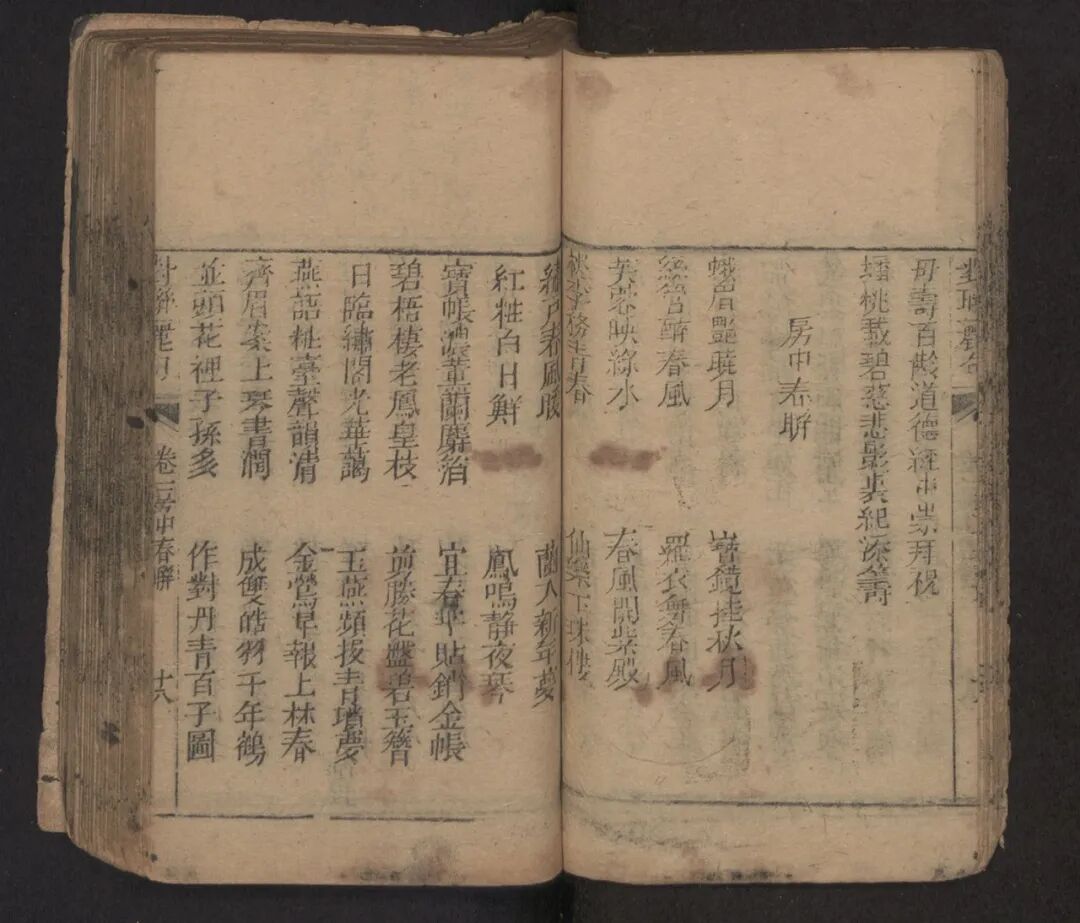 對聯麗句
母壽百齡道德經中崇拜祝
蟠桃載碧慈悲影裏紀添籌
房中春聯
蛾眉艷曉月　寶鏡挂秋月
絲管醉春風　羅衣舞春風
芙蓉映綠水　春風開紫殿
桃李務青春　仙樂下珠樓
繡戶春風暖　蘭入新年夢
紅粧白日鮮　鳳鳴靜夜琴
寶帳濃薰蘭麝洽　宜春華貼銷金帳
碧梧棲老鳳皇枝　剪勝花盤碧玉簪
日臨繡閣光華藹　玉燕頻投青瑣夢
燕語粧臺聲韻清　金鶯早報上林春
齊眉案上琴書潤　成雙皓羽千年鶴
並頭花裡子孫多　作對丹青百子圖
對聯麗句　卷二房中春聯　十八